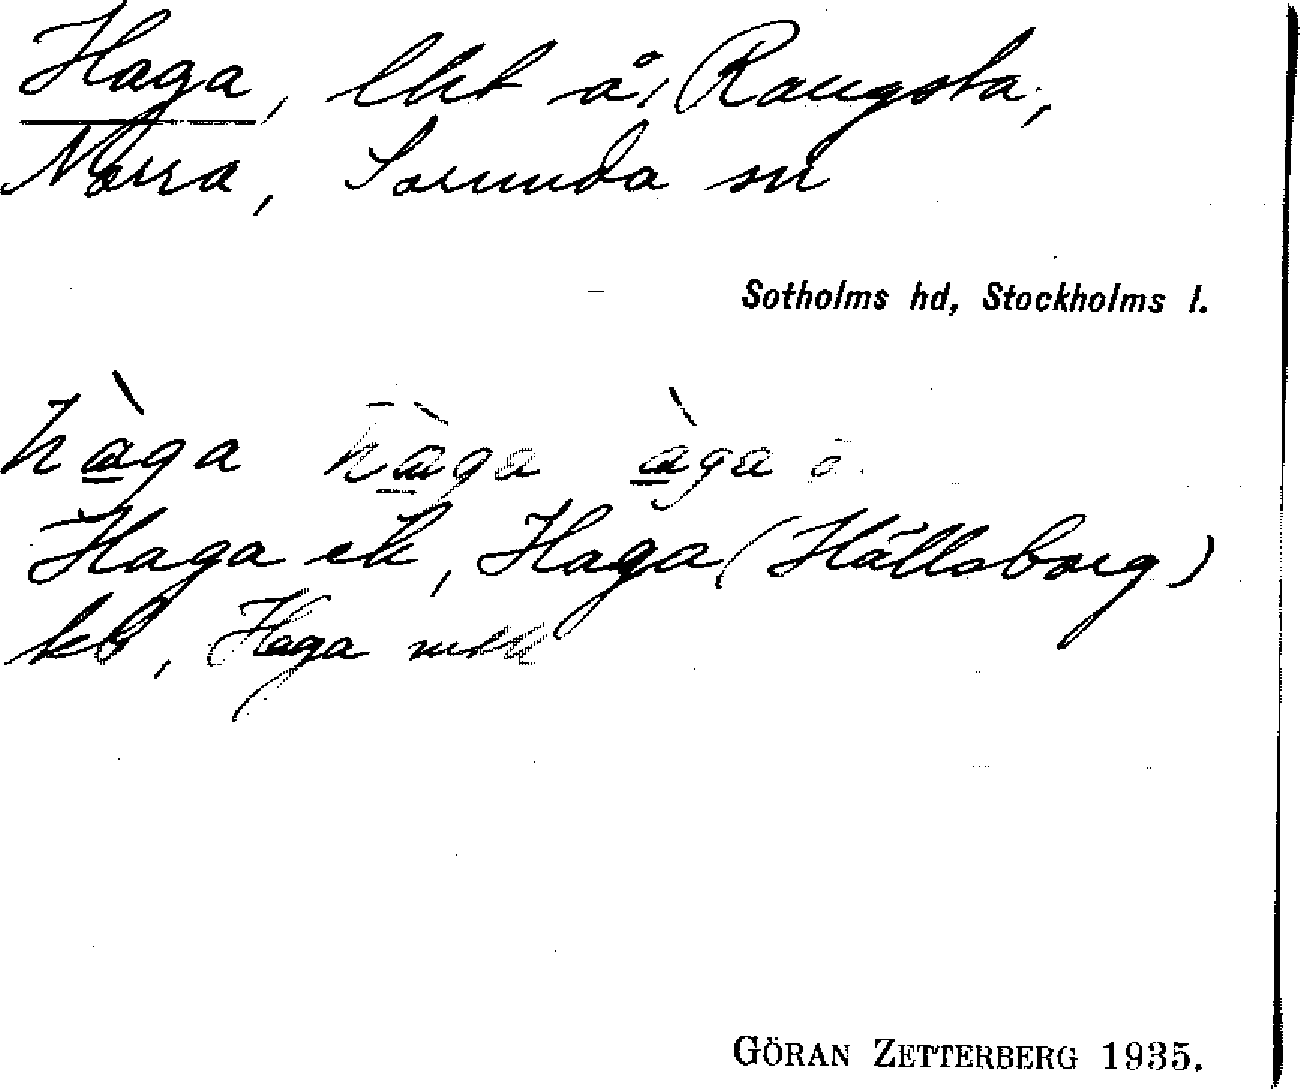 Haga, lht å Rangsta,
Norra, Sorunda sn
Sotholms hd, Stockholms l.
hàga hàga àga
Haga ek, Haga (Hällsborg)
kb, Haga
GÖRAN ZETTERBERG 1935.